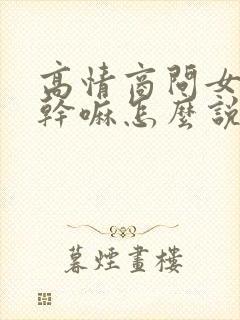 高情商問女
幹嘛怎麼說
暮煙畫樓